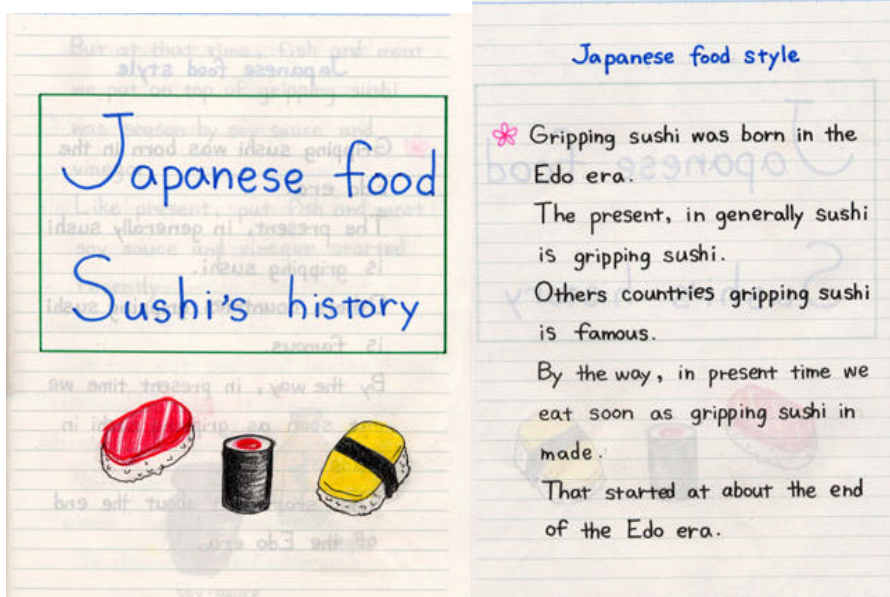 Japanese food
Sushi's history
Japanese food style
Gripping sushi was born in the
Edo era.
The present, in generally sushi
is gripping sushi.
Others countries gripping sushi
is famous.
By the way, in present time we
eat soon as gripping sushi in
made.
That started at about the end
of the Edo era.